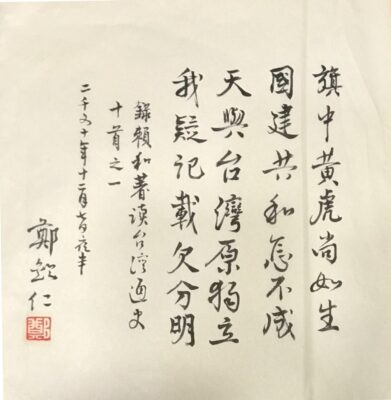 旗中黃虎尚如生
國建共和怎不成
天與台灣原獨立
我疑記載欠分明
錄賴和著讀台灣通史
十首之一
二千又十年十二月
鄭欽仁
鄭